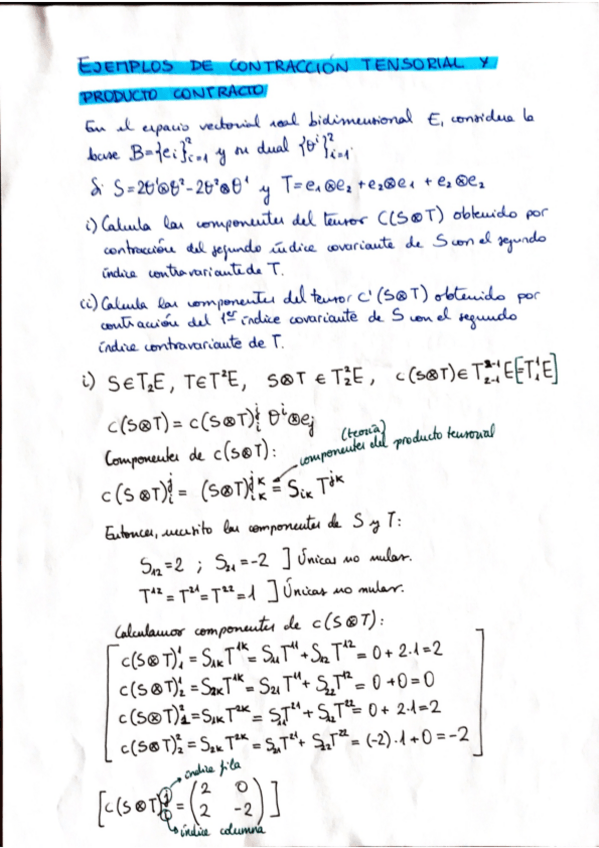 EJEMPLOS DE CONTRACCIÓN TENSORIAL Y
PRODUCTO CONTRACTO
En el espacio vectorial real bidimensional E, considera la
base B={eᵢ}²ᵢ₌₁ y su dual {θⁱ}²ᵢ₌₁.
Si S=2θ¹⊗θ²-2θ²⊗θ¹ y T=e₁⊗e₂+e₂⊗e₁+e₂⊗e₂
i) Calcula las componentes del tensor C(S⊗T) obtenido por
contracción del segundo índice covariante de S con el segundo
índice contravariante de T.
ii) Calcula las componentes del tensor C'(S⊗T) obtenido por
contracción del 1er índice covariante de S con el segundo
índice contravariante de T.
i) S∈T₂E, T∈T²E, S⊗T∈T²₂E, c(S⊗T)∈T²⁻¹₂₋₁E[T¹₁E]
c(S⊗T)=c(S⊗T)ʲᵢ θⁱ⊗eⱼ
Componentes de c(S⊗T):
(teoría)
componentes del producto tensorial
c(S⊗T)ʲᵢ=(S⊗T)ʲᵏᵢₖ=Sᵢₖ Tʲᵏ
Entonces, necesito las componentes de S y T:
S₁₂=2 ; S₂₁=-2 ] Únicas no nulas.
T¹²=T²¹=T²²=1 ] Únicas no nulas.
Calculamos componentes de c(S⊗T):
c(S⊗T)¹₁=S₁ₖT¹ᵏ=S₁₁T¹¹+S₁₂T¹²=0+2·1=2
c(S⊗T)¹₂=S₂ₖT¹ᵏ=S₂₁T¹¹+S₂₂T¹²=0+0=0
c(S⊗T)²₁=S₁ₖT²ᵏ=S₁₁T²¹+S₁₂T²²=0+2·1=2
c(S⊗T)²₂=S₂ₖT²ᵏ=S₂₁T²¹+S₂₂T²²=(-2)·1+0=-2
índice fila
[c(S⊗T)ʲᵢ=(2 0
2 -2)]
índice columna